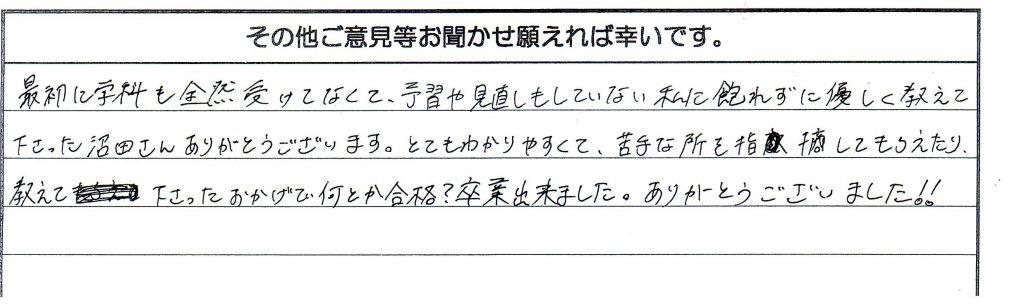 その他ご意見等お聞かせ願えれば幸いです。
最初に学科も全然受けてなくて、予習や見直しもしていない私に飽れずに優しく教えて
下さった沼田さんありがとうございます。とてもわかりやすくて、苦手な所を指摘してもらえたり、
教えて下さったおかげで何とか合格?卒業出来ました。ありがとうございました!!